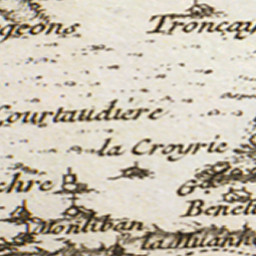 geons
Troncay
Courtaudiere
la Croyrie
chre
G
Monliban
la Milanh